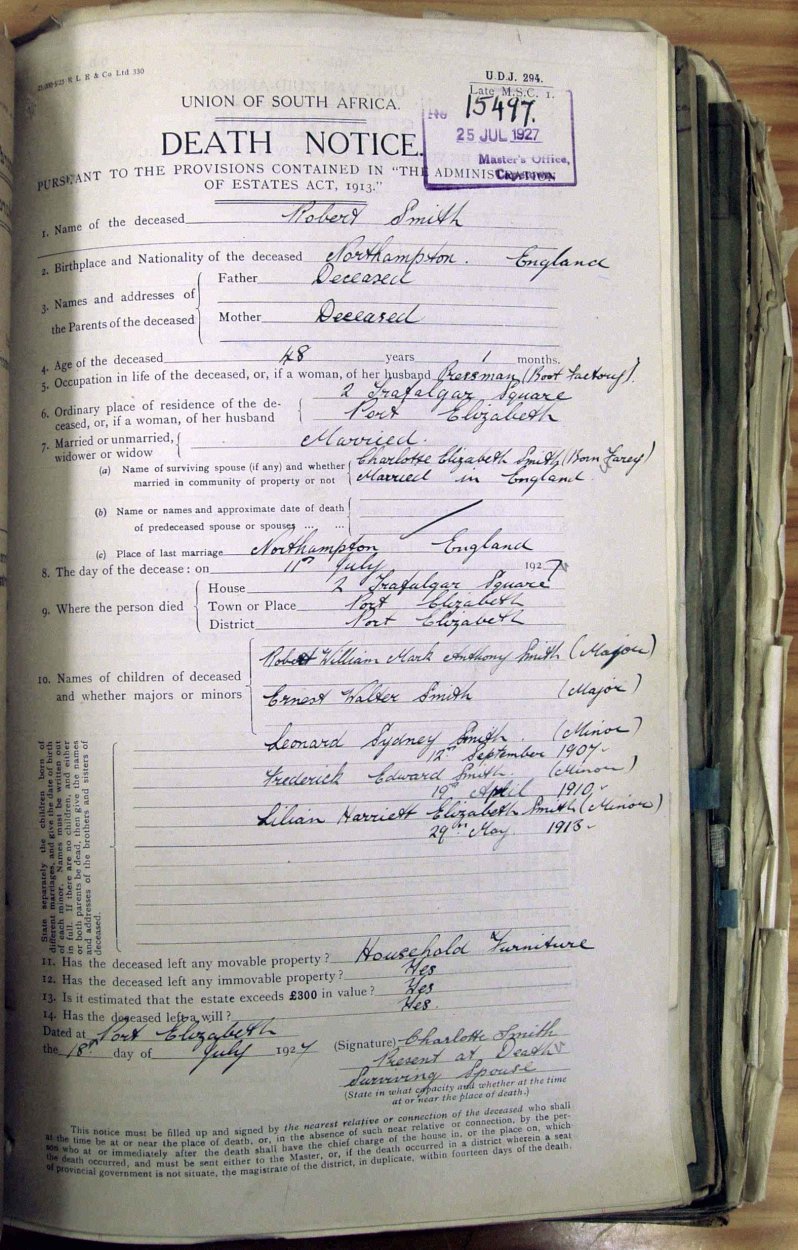 U.D.J. 294.
Late M.S.C. 1.
No 15497.
25 JUL 1927
Master's Office,
UNION OF SOUTH AFRICA.
DEATH NOTICE.
PURSUANT TO THE PROVISIONS CONTAINED IN "THE ADMINISTRATION
OF ESTATES ACT, 1913."
1. Name of the deceased Robert Smith
2. Birthplace and Nationality of the deceased Northampton. England
3. Names and addresses of the Parents of the deceased
Father Deceased
Mother Deceased
4. Age of the deceased 48 years 1 months.
5. Occupation in life of the deceased, or, if a woman, of her husband Pressman (Boot Factory).
6. Ordinary place of residence of the de-
ceased, or, if a woman, of her husband
2 Trafalgar Square
Port Elizabeth
7. Married or unmarried,
widower or widow
Married.
(a) Name of surviving spouse (if any) and whether
married in community of property or not
Charlotte Elizabeth Smith (Born Farey)
Married in England.
(b) Name or names and approximate date of death
of predeceased spouse or spouses ... ...
(c) Place of last marriage Northampton England
8. The day of the decease: on 11th July 1927
9. Where the person died
House 2 Trafalgar Square
Town or Place Port Elizabeth
District Port Elizabeth
10. Names of children of deceased
and whether majors or minors
Robert William Mark Anthony Smith (Major)
Ernest Walter Smith (Major)
State separately the children born of
different marriages, and give the date of birth
of each minor. Names must be written out
in full. If there are no children, and either
or both parents be dead, then give the names
and addresses of the brothers and sisters of
deceased.
Leonard Sydney Smith. (Minor)
12th September 1907.
Frederick Edward Smith. (Minor)
19th April 1910.
Lilian Harriett Elizabeth Smith (Minor)
29th May. 1913.
11. Has the deceased left any movable property? Household Furniture
12. Has the deceased left any immovable property? Yes
13. Is it estimated that the estate exceeds £300 in value? Yes
14. Has the deceased left a will? Yes.
Dated at Port Elizabeth
the 18th day of July 1927
(Signature) Charlotte Smith
Present at Death
Surviving Spouse
(State in what capacity and whether at the time
at or near the place of death.)
This notice must be filled up and signed by the nearest relative or connection of the deceased who shall
at the time be at or near the place of death, or, in the absence of such near relative or connection, by the per-
son who at or immediately after the death shall have the chief charge of the house in, or the place on, which
the death occurred, and must be sent either to the Master, or, if the death occurred in a district wherein a seat
of provincial government is not situate, the magistrate of the district, in duplicate, within fourteen days of the death.